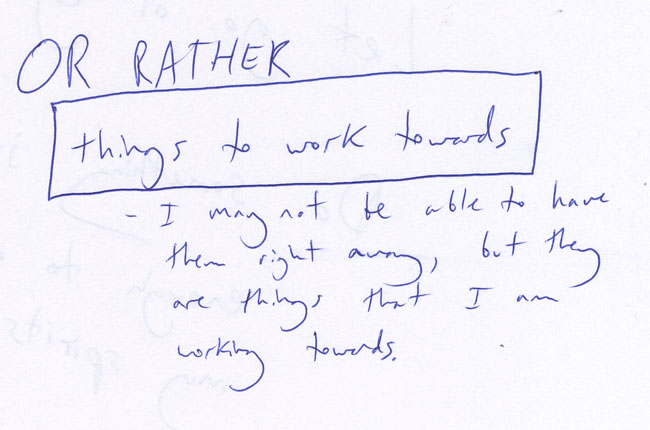 OR RATHER
things to work towards
- I may not be able to have
them right away, but they
are things that I am
working towards.